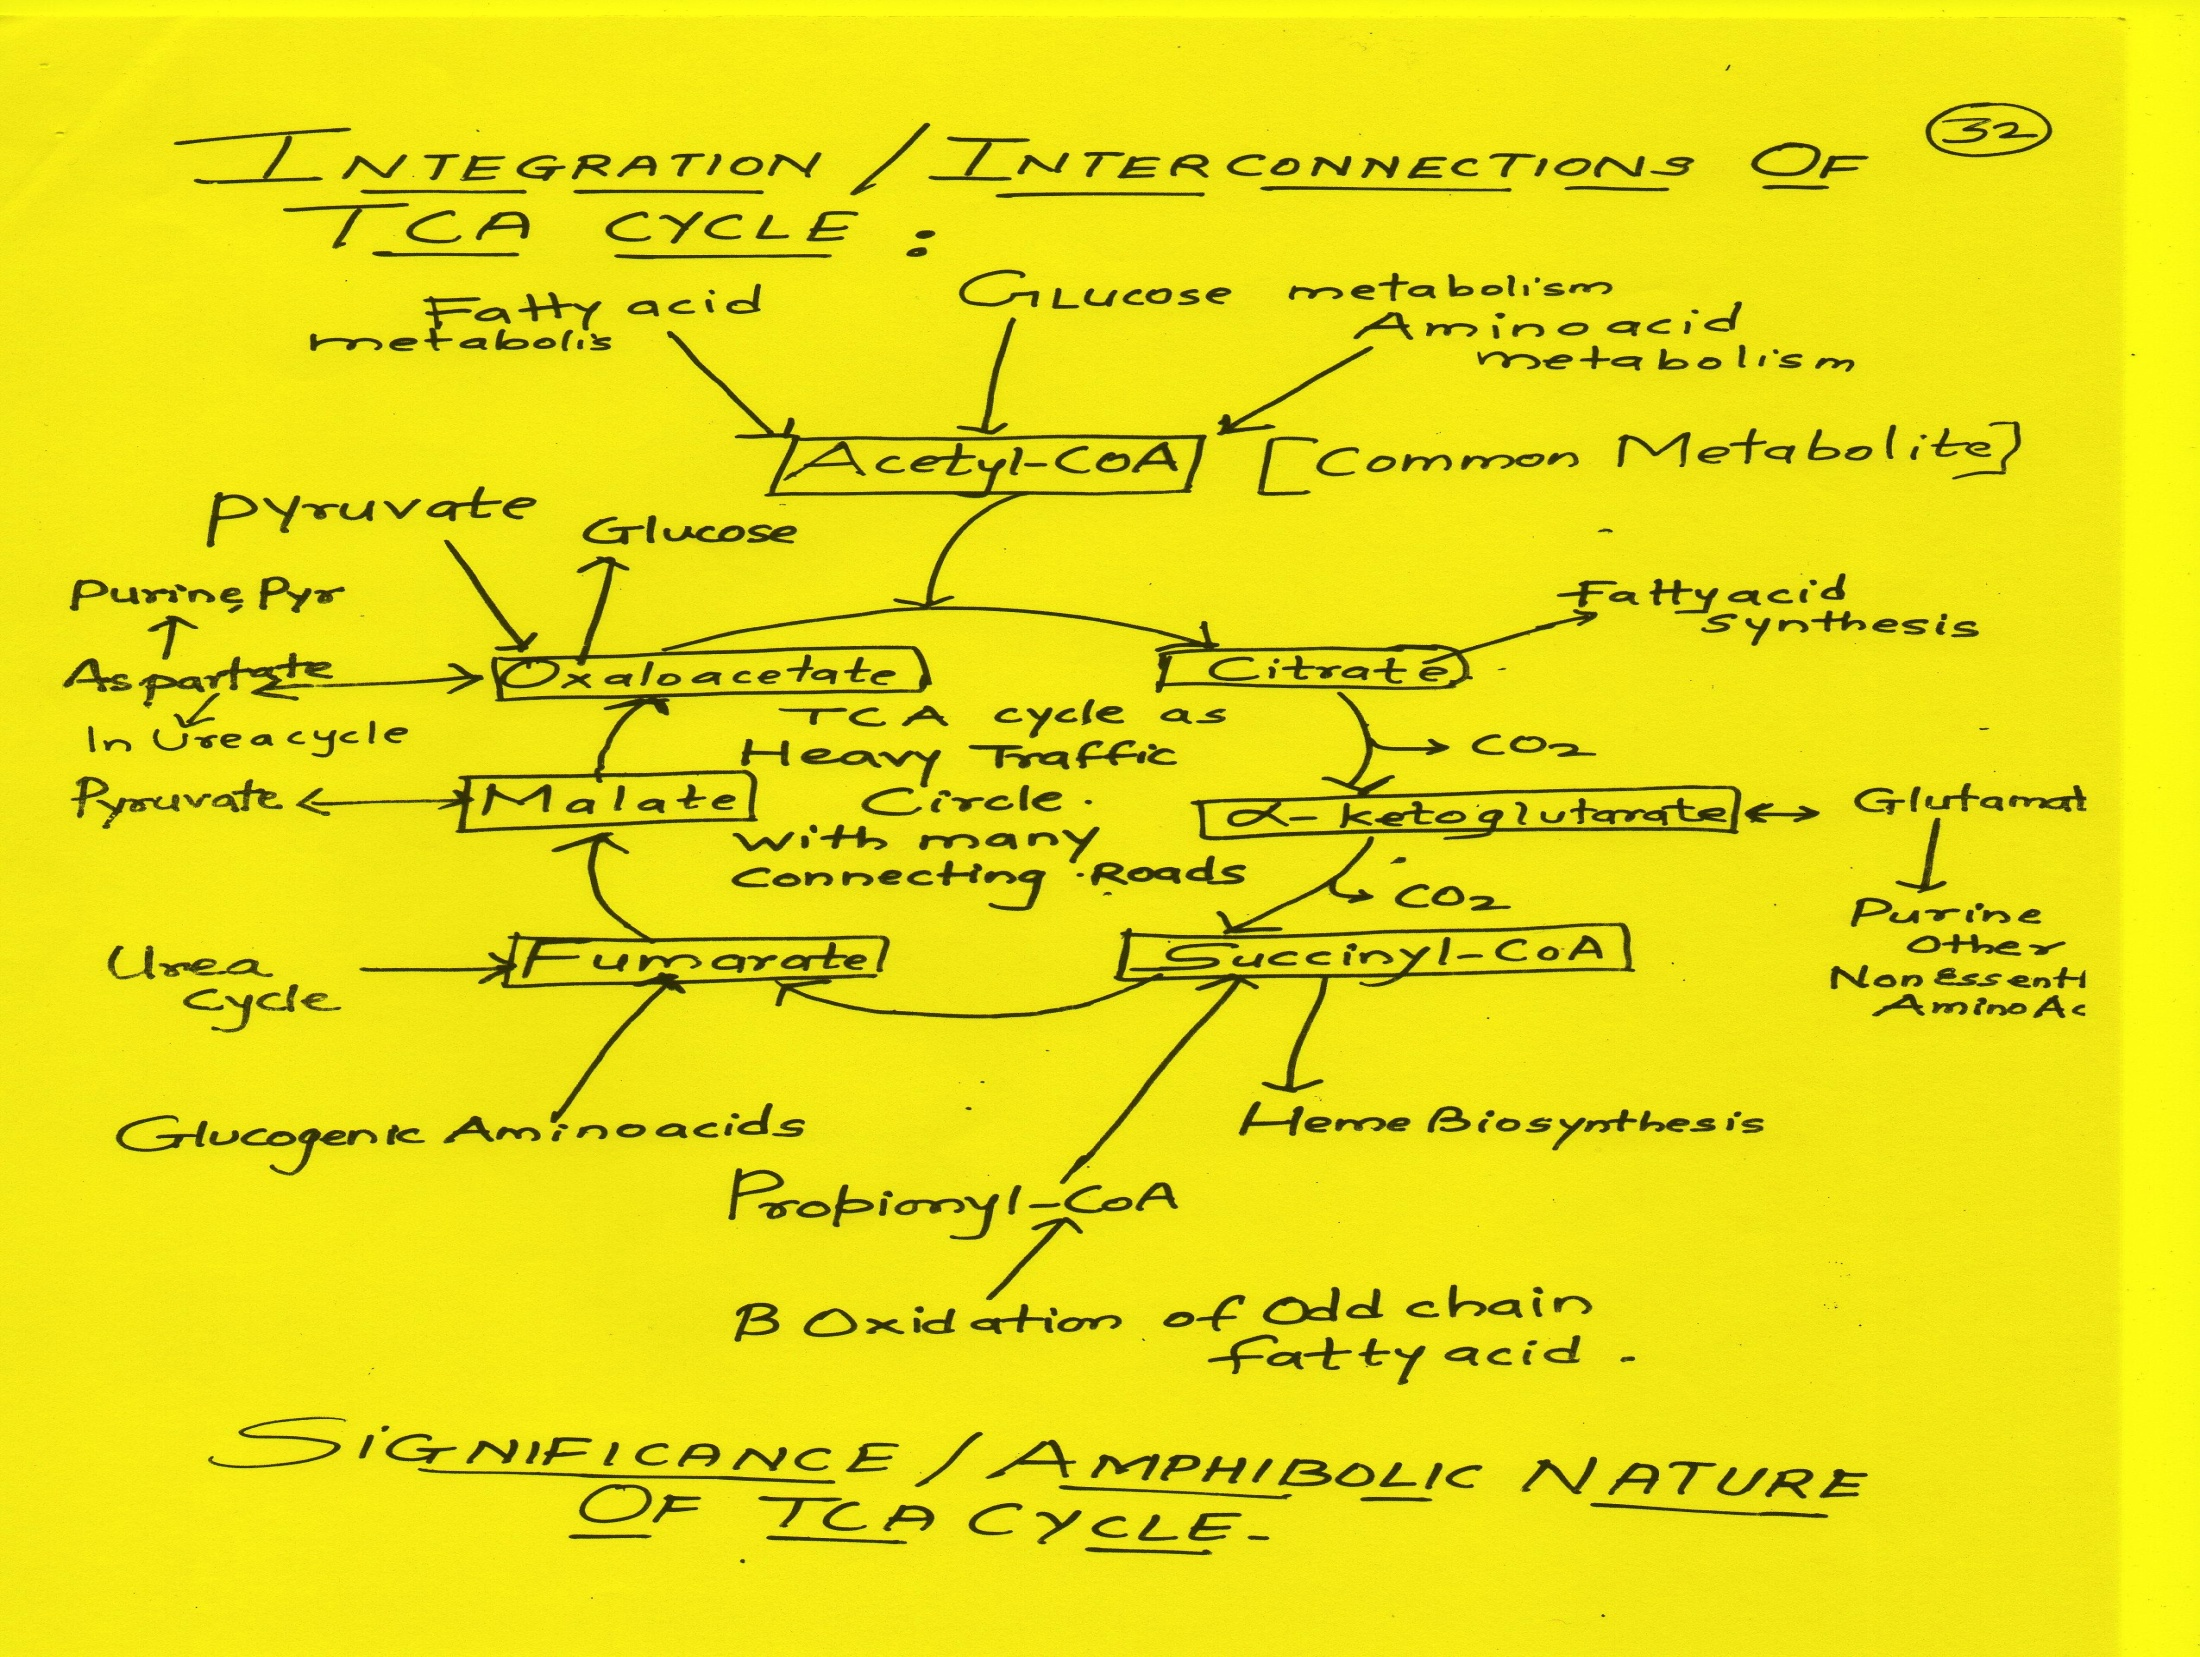 32
INTEGRATION / INTERCONNECTIONS OF
TCA CYCLE :
Fatty acid
metabolis
GLucose metabolism
Aminoacid
metabolism
Acetyl-CoA
[Common Metabolite]
Pyruvate
Glucose
Purine, Pyr
Fattyacid
Synthesis
Aspartate
Oxaloacetate
Citrate
In Ureacycle
TCA cycle as
Heavy Traffic
Circle.
with many
connecting Roads
CO2
Pyruvate
Malate
α-ketoglutarate
Glutamat
CO2
Purine
Other
NonEssenti
AminoAc
Urea
Cycle
Fumarate
Succinyl-CoA
Glucogenic Aminoacids
Heme Biosynthesis
Propionyl-CoA
B Oxidation of Odd chain
fatty acid.
SiGNIFICANCE / AMPHIBOLIC NATURE
OF TCA CYCLE-